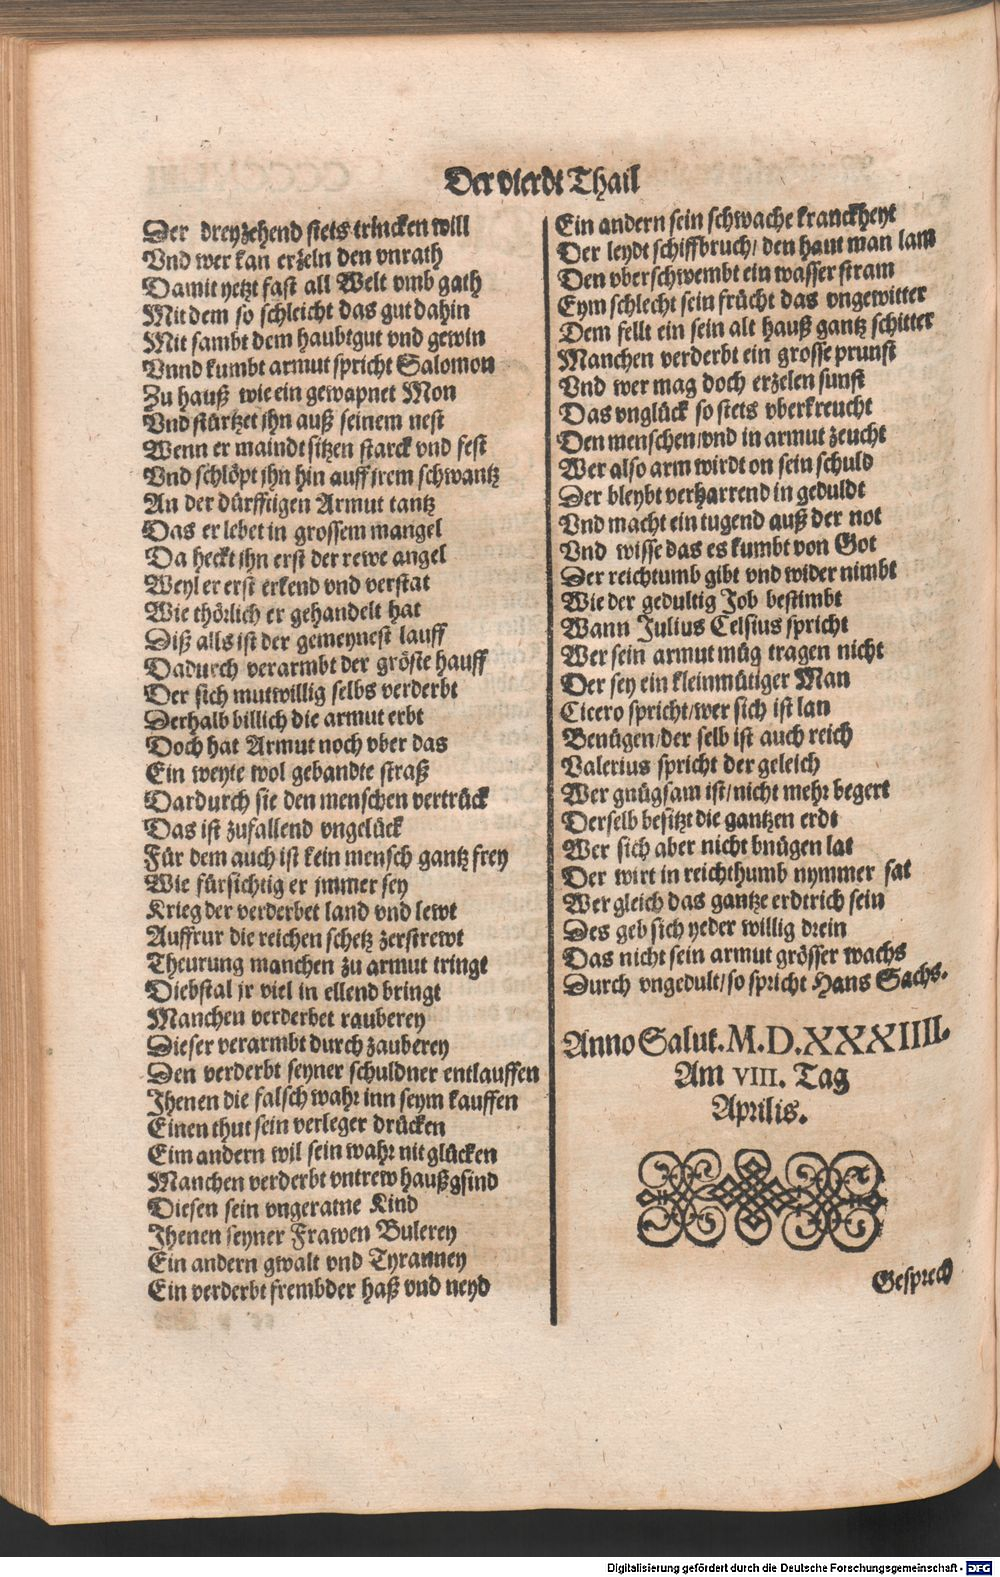 Der vierdt Thail
Der dreyzehend stets trincken will
Vnd wer kan erzeln den vnrath
Damit yetzt fast all Welt vmb gath
Mit dem so schleicht das gut dahin
Mit sambt dem haubtgut vnd gewin
Vnnd kumbt armut spricht Salomon
Zu hauß wie ein gewapnet Mon
Vnd stürtzet jhn auß seinem nest
Wenn er maindt sitzen starck vnd fest
Vnd schlöpt jhn hin auff jrem schwantz
An der dürfftigen Armut tantz
Das er lebet in grossem mangel
Da heckt jhn erst der rewe angel
Weyl er erst erkend vnd verstat
Wie thörlich er gehandelt hat
Diß alls ist der gemeynest lauff
Dadurch verarmbt der gröste hauff
Der sich mutwillig selbs verderbt
Derhalb billich die armut erbt
Doch hat Armut noch vber das
Ein weyte wol gebandte straß
Dardurch sie den menschen vertrück
Das ist zufallend vngelück
Für dem auch ist kein mensch gantz frey
Wie fürsichtig er jmmer sey
Krieg der verderbet land vnd lewt
Auffrur die reichen schetz zerstrewt
Theurung manchen zu armut tringt
Diebstal jr viel in ellend bringt
Manchen verderbet rauberey
Dieser verarmbt durch zauberey
Den verderbt seyner schuldner entlauffen
Jhenen die falsch wahr inn seym kauffen
Einen thut sein verleger drücken
Eim andern wil sein wahr nit glücken
Manchen verderbt vntrew haußgsind
Diesen sein vngeratne Kind
Jhenen seyner Frawen Bulerey
Ein andern gwalt vnd Tyranney
Ein verderbt frembder haß vnd neyd
Ein andern sein schwache kranckheyt
Der leydt schiffbruch/ den haut man lam
Den vberschwembt ein wasser stram
Eym schlecht sein frücht das vngewitter
Dem fellt ein sein alt hauß gantz schitter
Manchen verderbt ein grosse prunst
Vnd wer mag doch erzelen sunst
Das vnglück so stets vberkreucht
Den menschen/vnd in armut zeucht
Wer also arm wirdt on sein schuld
Der bleybt verharrend in geduldt
Vnd macht ein tugend auß der not
Vnd wisse das es kumbt von Got
Der reichtumb gibt vnd wider nimbt
Wie der gedultig Job bestimbt
Wann Julius Celsius spricht
Wer sein armut müg tragen nicht
Der sey ein kleinmütiger Man
Cicero spricht/wer sich ist lan
Benügen/der selb ist auch reich
Valerius spricht der geleich
Wer gnügsam ist/nicht mehr begert
Derselb besitzt die gantzen erdt
Wer sich aber nicht bnügen lat
Der wirt in reichthumb nymmer sat
Wer gleich das gantze erdtrich sein
Des geb sich yeder willig drein
Das nicht sein armut grösser wachs
Durch vngedult/so spricht Hans Sachs.
Anno Salut. M.D.XXXIIII.
Am VIII. Tag
Aprilis.
Gesprech
Digitalisierung gefördert durch die Deutsche Forschungsgemeinschaft - DFG